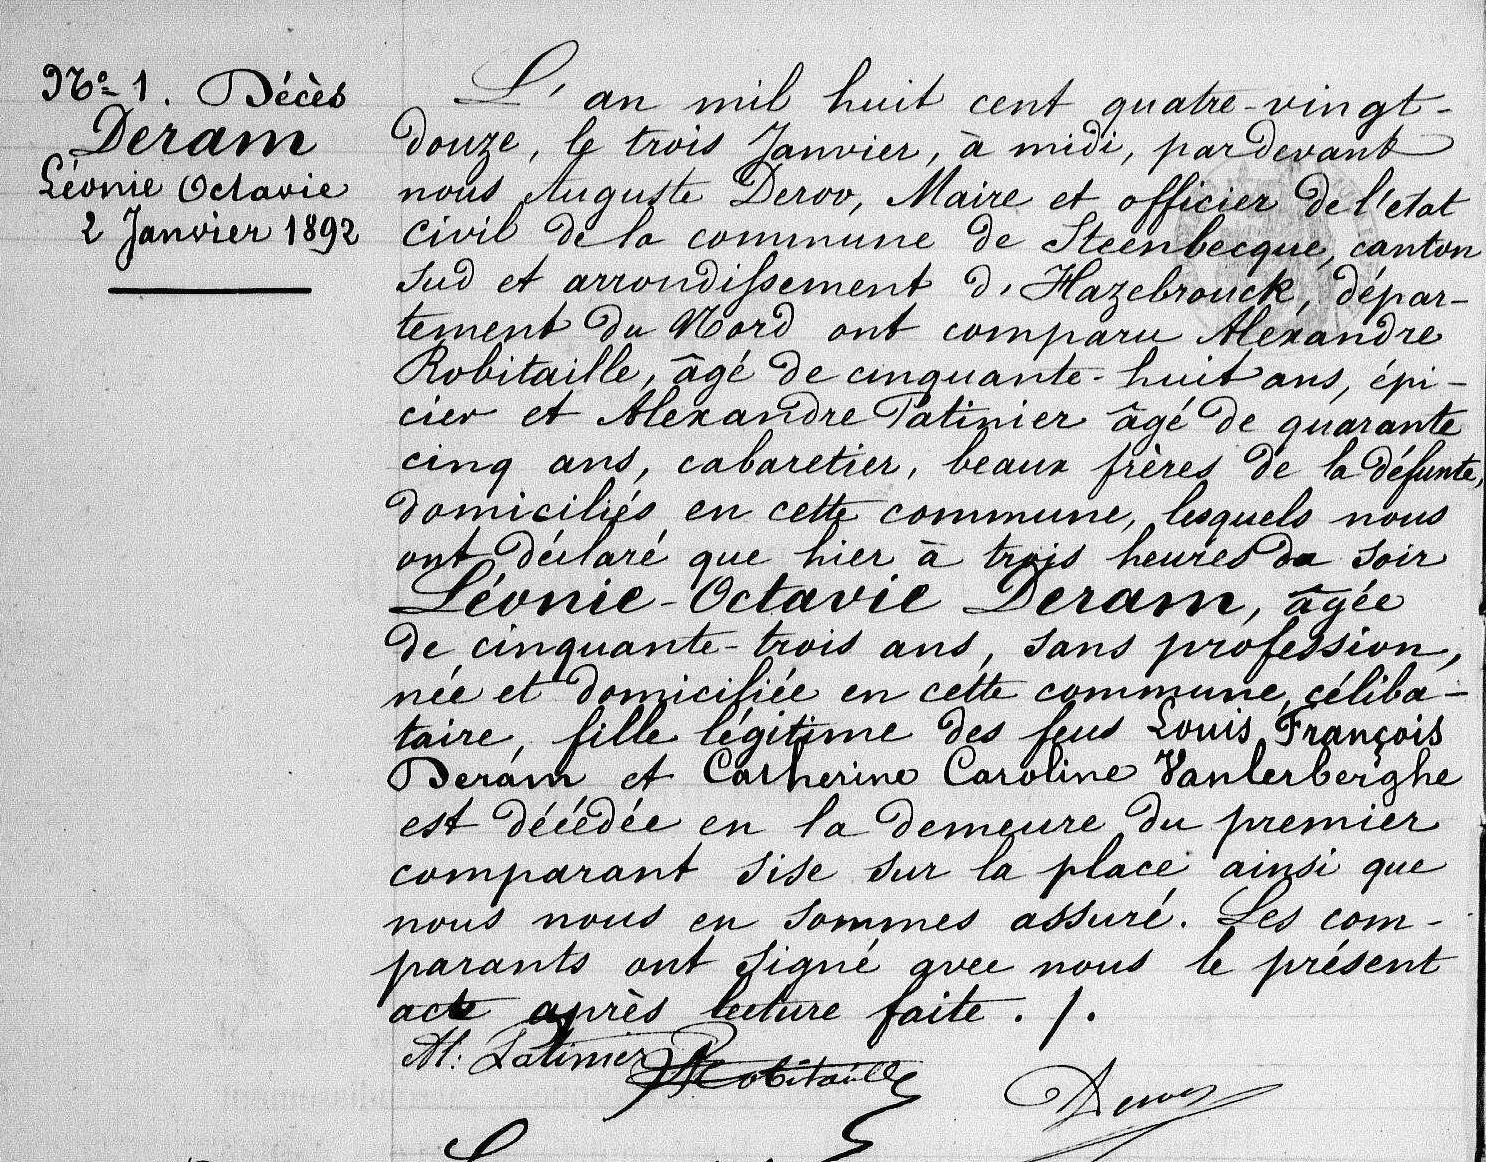 No- 1. Décès
Deram
Léonie Octavie
2 Janvier 1892
L'an mil huit cent quatre-vingt-
douze, le trois Janvier, à midi, pardevant
nous Auguste Deroo, Maire et officier de l'etat
civil de la commune de Steenbecque, canton
sud et arrondissement d'Hazebrouck, dépar-
tement du Nord ont comparu Alexandre
Robitaille, âgé de cinquante-huit ans, épi-
cier et Alexandre Patinier âgé de quarante
cinq ans, cabaretier, beaux frères de la défunte,
domiciliés en cette commune, lesquels nous
ont déclaré que hier à trois heures du soir
Léonie-Octavie Deram, âgée
de cinquante-trois ans, sans profession,
née et domiciliée en cette commune, céliba-
taire, fille légitime des feus Louis François
Deram et Catherine Caroline Vanlerberghe
est décédée en la demeure du premier
comparant sise sur la place ainsi que
nous nous en sommes assuré. Les com-
parants ont signé avec nous le présent
acte après lecture faite. /.
Al: Patinier Robitaille
Deroo